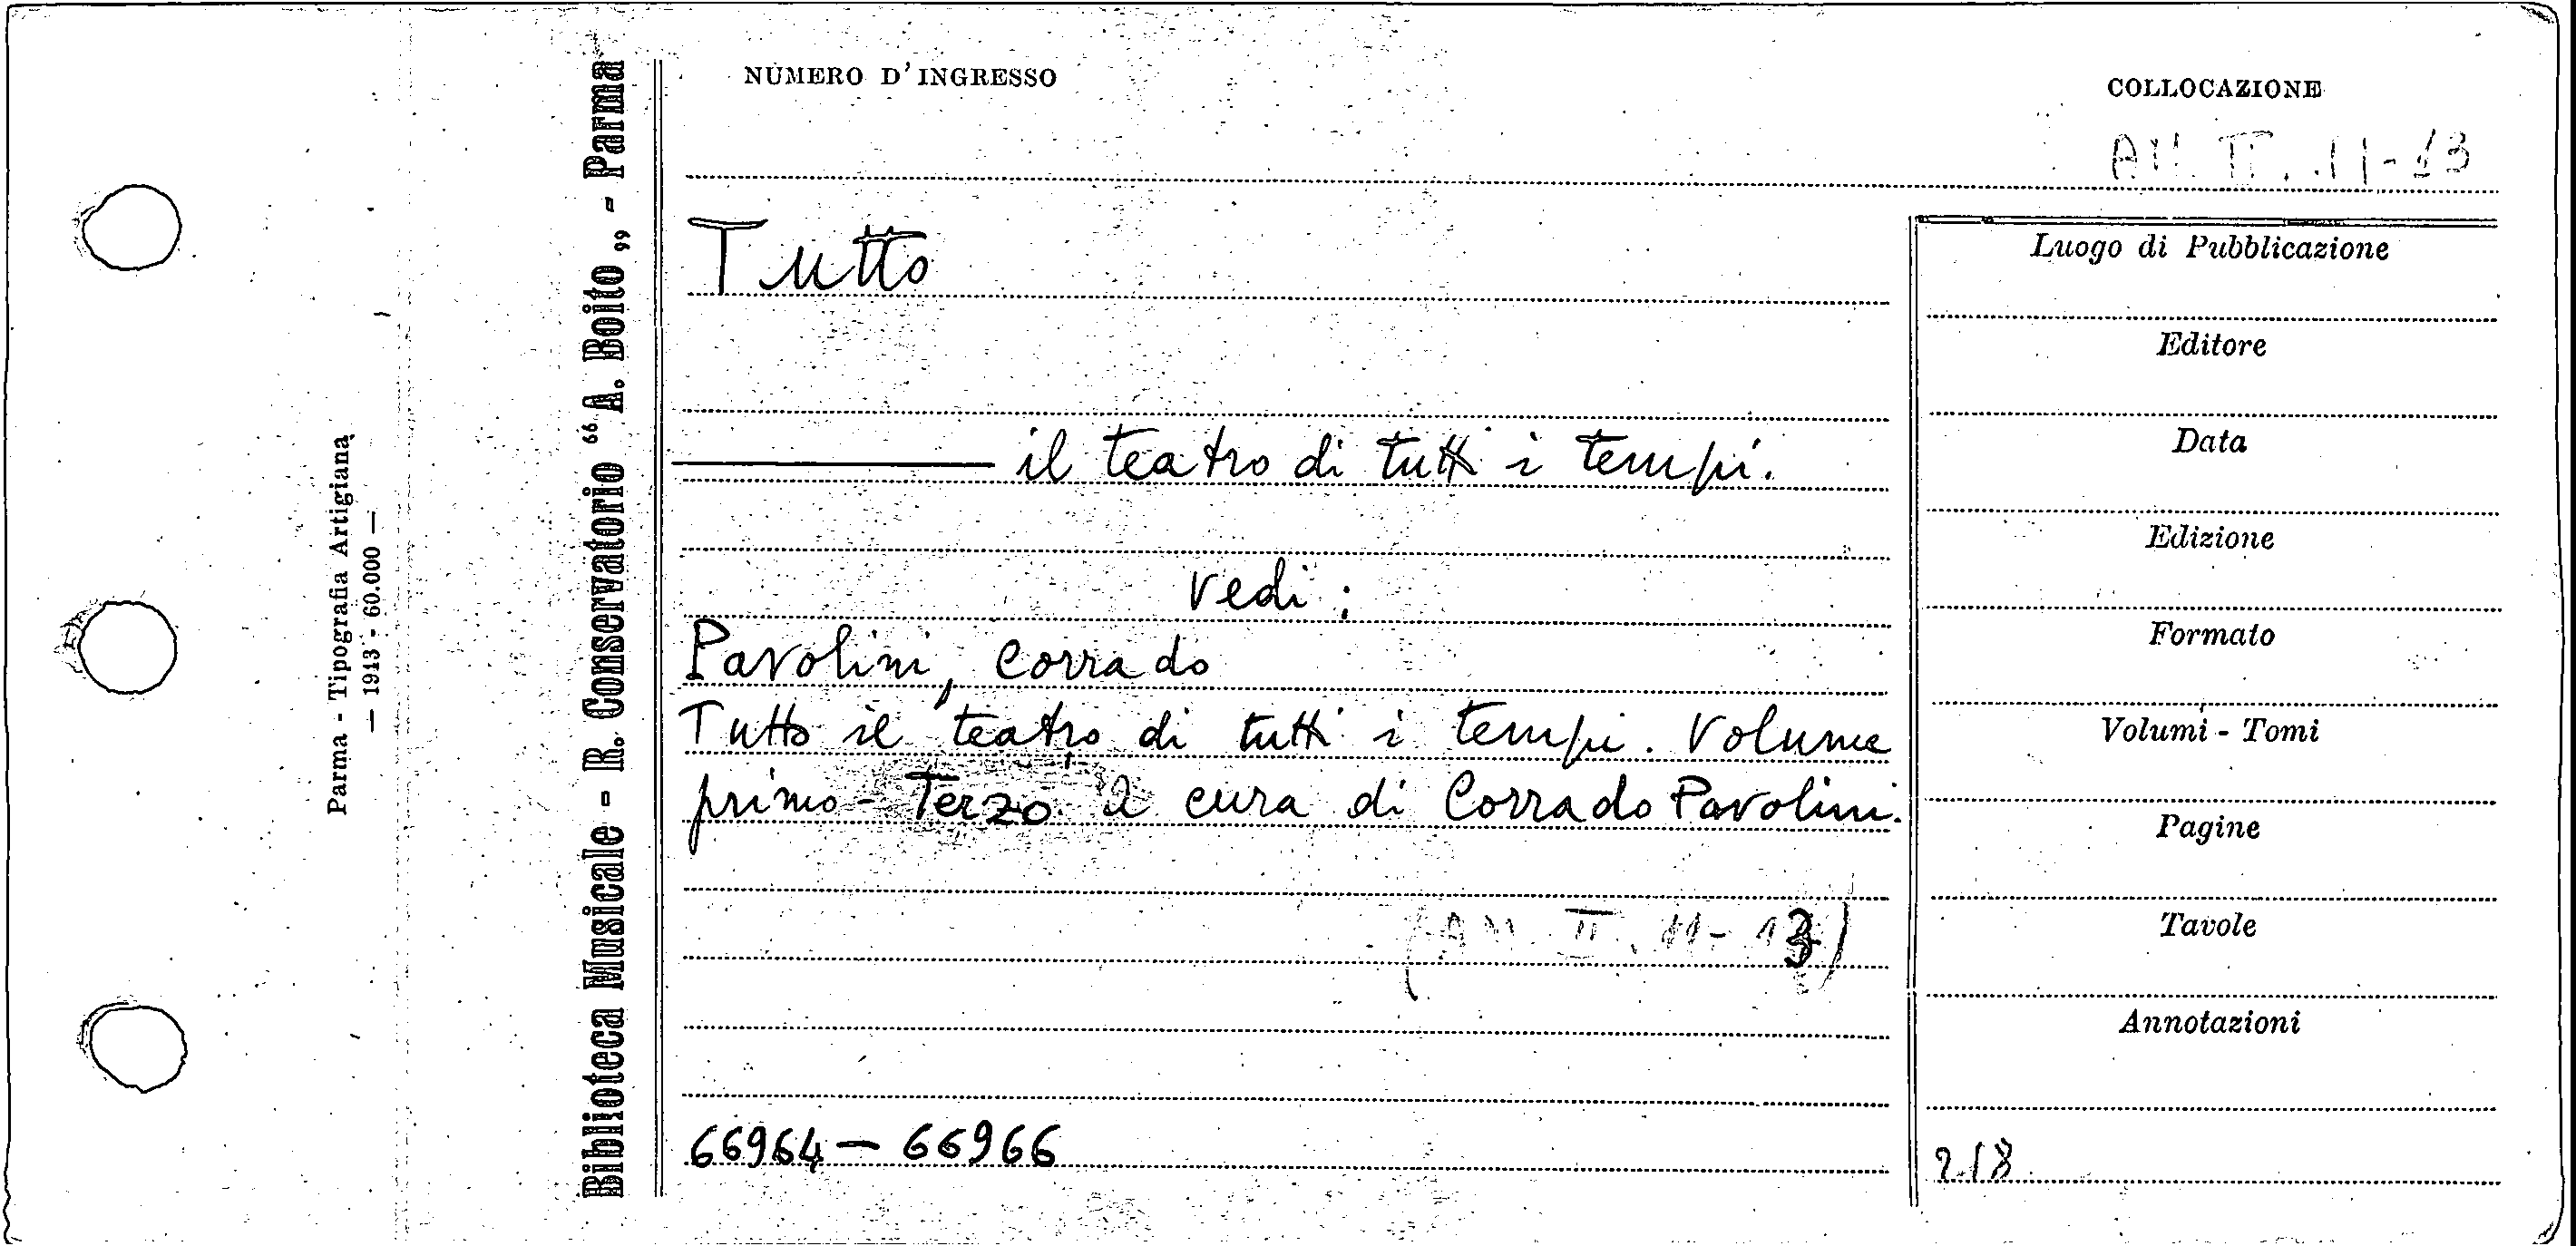 NUMERO D'INGRESSO
COLLOCAZIONE
II. 11-13
Tutto
il teatro di tutti i tempi.
vedi:
Pavolini, Corrado
Tutto il teatro di tutti i tempi. Volume
primo - Terzo a cura di Corrado Pavolini.
II. 11-13)
66964 — 66966
Luogo di Pubblicazione
Editore
Data
Edizione
Formato
Volumi - Tomi
Pagine
Tavole
Annotazioni
218
Biblioteca Musicale - R. Conservatorio "A. Boito„ - Parma
Parma - Tipografia Artigiana
— 1943 - 60.000 —